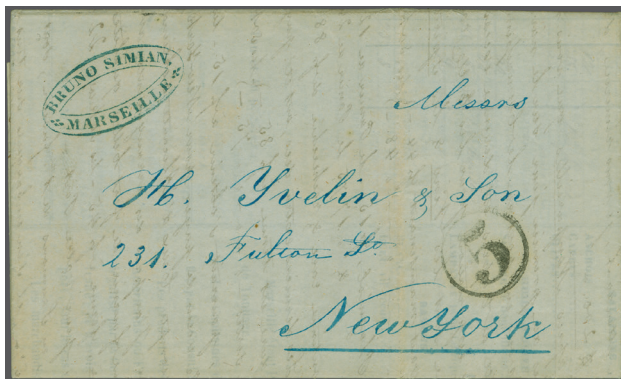 BRUNO SIMIAN,
MARSEILLE
Messrs
H. Yvelin & Son
231. Fulton St.
5
New York